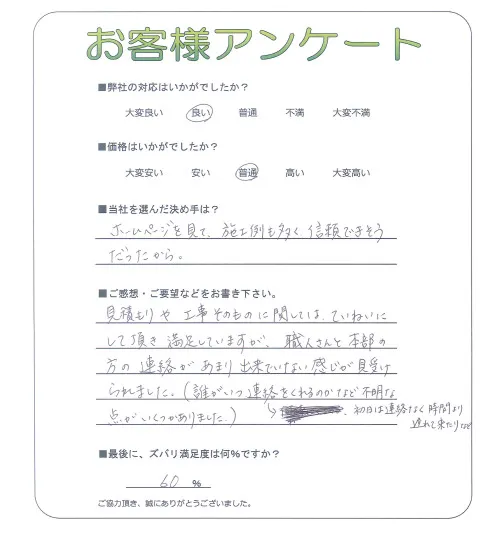 お客様アンケート
■弊社の対応はいかがでしたか？
大変良い　良い　普通　不満　大変不満
■価格はいかがでしたか？
大変安い　安い　普通　高い　大変高い
■当社を選んだ決め手は？
ホームページを見て、施工例も多く信頼できそう
だったから。
■ご感想・ご要望などをお書き下さい。
見積もりや工事そのものに関しては、ていねいに
して頂き満足していますが、職人さんと本部の
方の連絡があまり出来ていない感じが見受け
られました。(誰がいつ連絡をくれるのかなど不明な
点がいくつかありました。)
↳、初日は連絡なく時間より
遅れて来たりなど
■最後に、ズバリ満足度は何%ですか？
60 %
ご協力頂き、誠にありがとうございました。